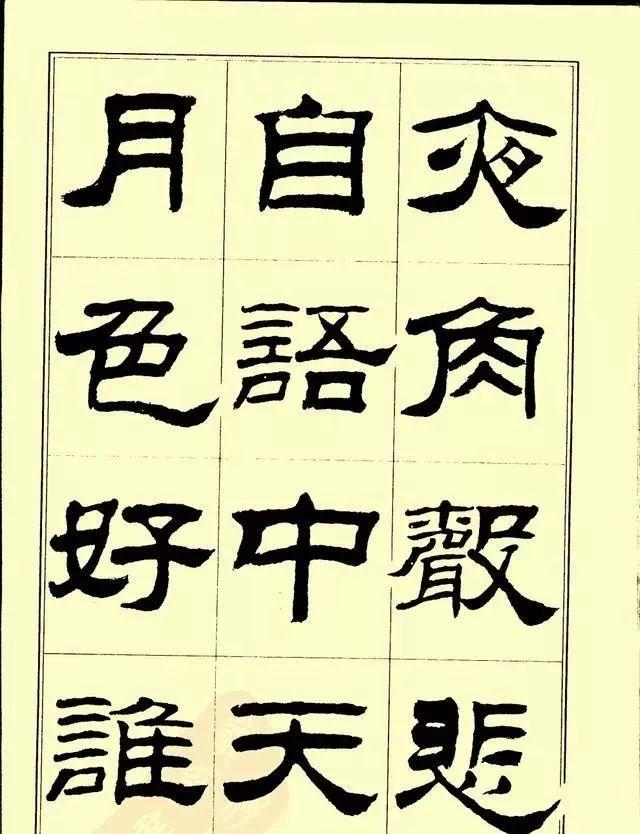 夜角聲悲
自語中天
月色好誰